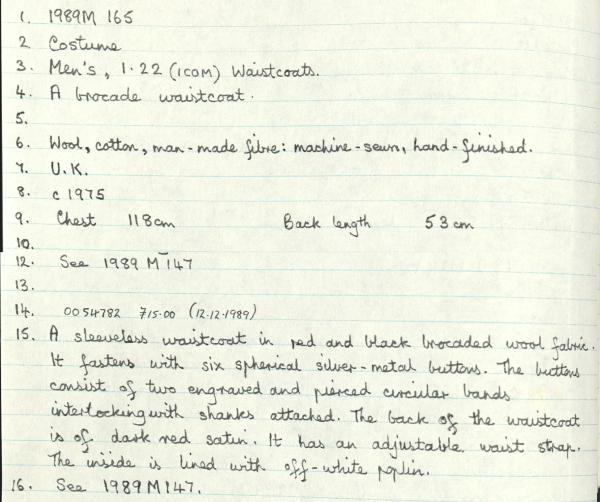 1. 1989M 165
2 Costume
3. Men's, 1.22 (ICOM) Waistcoats.
4. A brocade waistcoat.
5.
6. Wool, cotton, man-made fibre: machine-sewn, hand-finished.
7. U.K.
8. c 1975
9. Chest 118cm Back length 53cm
10.
12. See 1989 M 147
13.
14. 0054782 715.00 (12.12.1989)
15. A sleeveless waistcoat in red and black brocaded wool fabric.
It fastens with six spherical silver-metal buttons. The buttons
consist of two engraved and pierced circular bands
interlocking with shanks attached. The back of the waistcoat
is of dark red satin. It has an adjustable waist strap.
The inside is lined with off-white poplin.
16. See 1989M147.